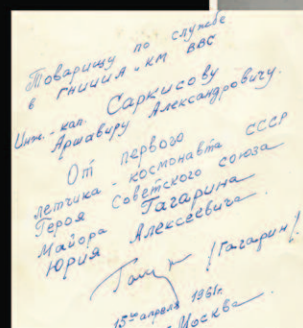 Товарищу по службе
в ГНИИИА и КМ ВВС
Инж.-кап. Саркисову
Аршавиру Александровичу.
От первого
летчика-космонавта СССР
Героя Советского Союза
Майора Гагарина
Юрия Алексеевича.
/Гагарин/
15го апреля 1961г.
Москва